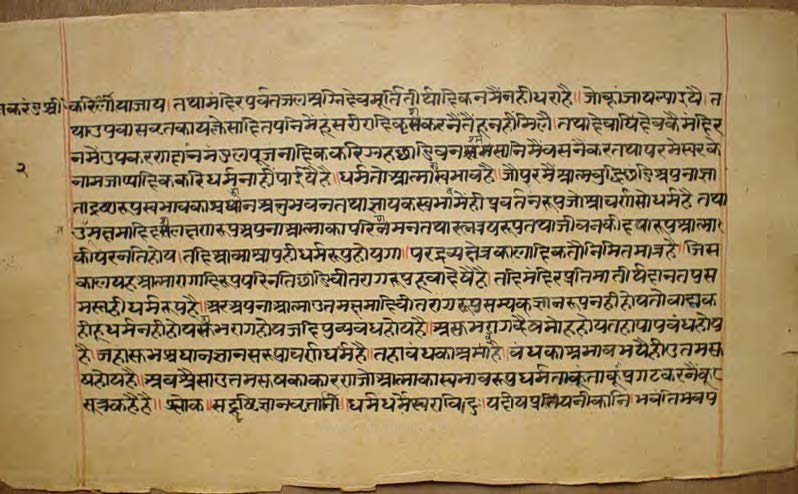 करि लीया जाय। तथा मंदिर पर्वत जल अग्नि देव मूर्ति तीर्थादिकनमैं नही धरा है॥ जो वहां जाय ल्याईयै। त
था उपवास व्रत कायक्लेसादि तपनिमैं हू सरीरादि कृस करनैतैं हू नही मिलै। तथा देवाधिदेवकै मंदिर
नमैं उपकरण दान मंडल पूजनादिक करि गृह छाडि वन मसाननिमैं वसनैकर तथा परमेस्वरके
नाम जाप्यादिक करि धर्म नाहीं पाईयै है। धर्म तो आत्मा स्वभाव है। जो पुरमैं आत्मबुद्धि छाडि अपना ज्ञा
ता द्रष्टारूप स्वभावका श्रद्धान अनुभवन तथा ज्ञायक स्वभावमैं ही प्रवर्तनरूप जो आचर्ण सो धर्म है तथा
उत्तमक्षमादि लक्षणरूप अपना आत्माका परिनमन तथा रत्नत्रयरूप तथा जीवनकी दयारूप आत्मा
की परनति होय। तदि आत्मा आपही धर्मरूप होयगा। परद्रव्य क्षेत्र कालादिक तौ निमित मात्र है। जिस
काल यह आत्मा रागादिरूप परिनति छाडि वीतरागरूप हूवा देषै है। तदि मंदिर प्रतिमा तीर्थ दान तप स
मस्तही धर्मरूप है॥ अर अपना आत्मा उतमक्षमादि वीतरागरूप सम्यकज्ञानरूप नही होय तौ वाह्य क
ही हू धर्म नही होय सुभराग होय जदि पुन्यवंध होय है। असुभ राग द्वेष मोह होय तहा पाप वंध होय
है। जहा श्रद्धान ज्ञान स्वरूपाचर्ण धर्म है। तहा वंधका अभाव है। वंधका अभाव भयैही उतम सुख
होय है। अव असा उतम सुषका कारण जो आत्माका स्वभावरूप धर्म ताकूं प्रगट करनैकूं
सूत्र कहै है॥ श्लोक॥ सद्दृष्टिज्ञानवृतानि। धर्मं धर्मेस्वरा विदुः यदीयप्रत्यनीकानि भवंति भवप
२